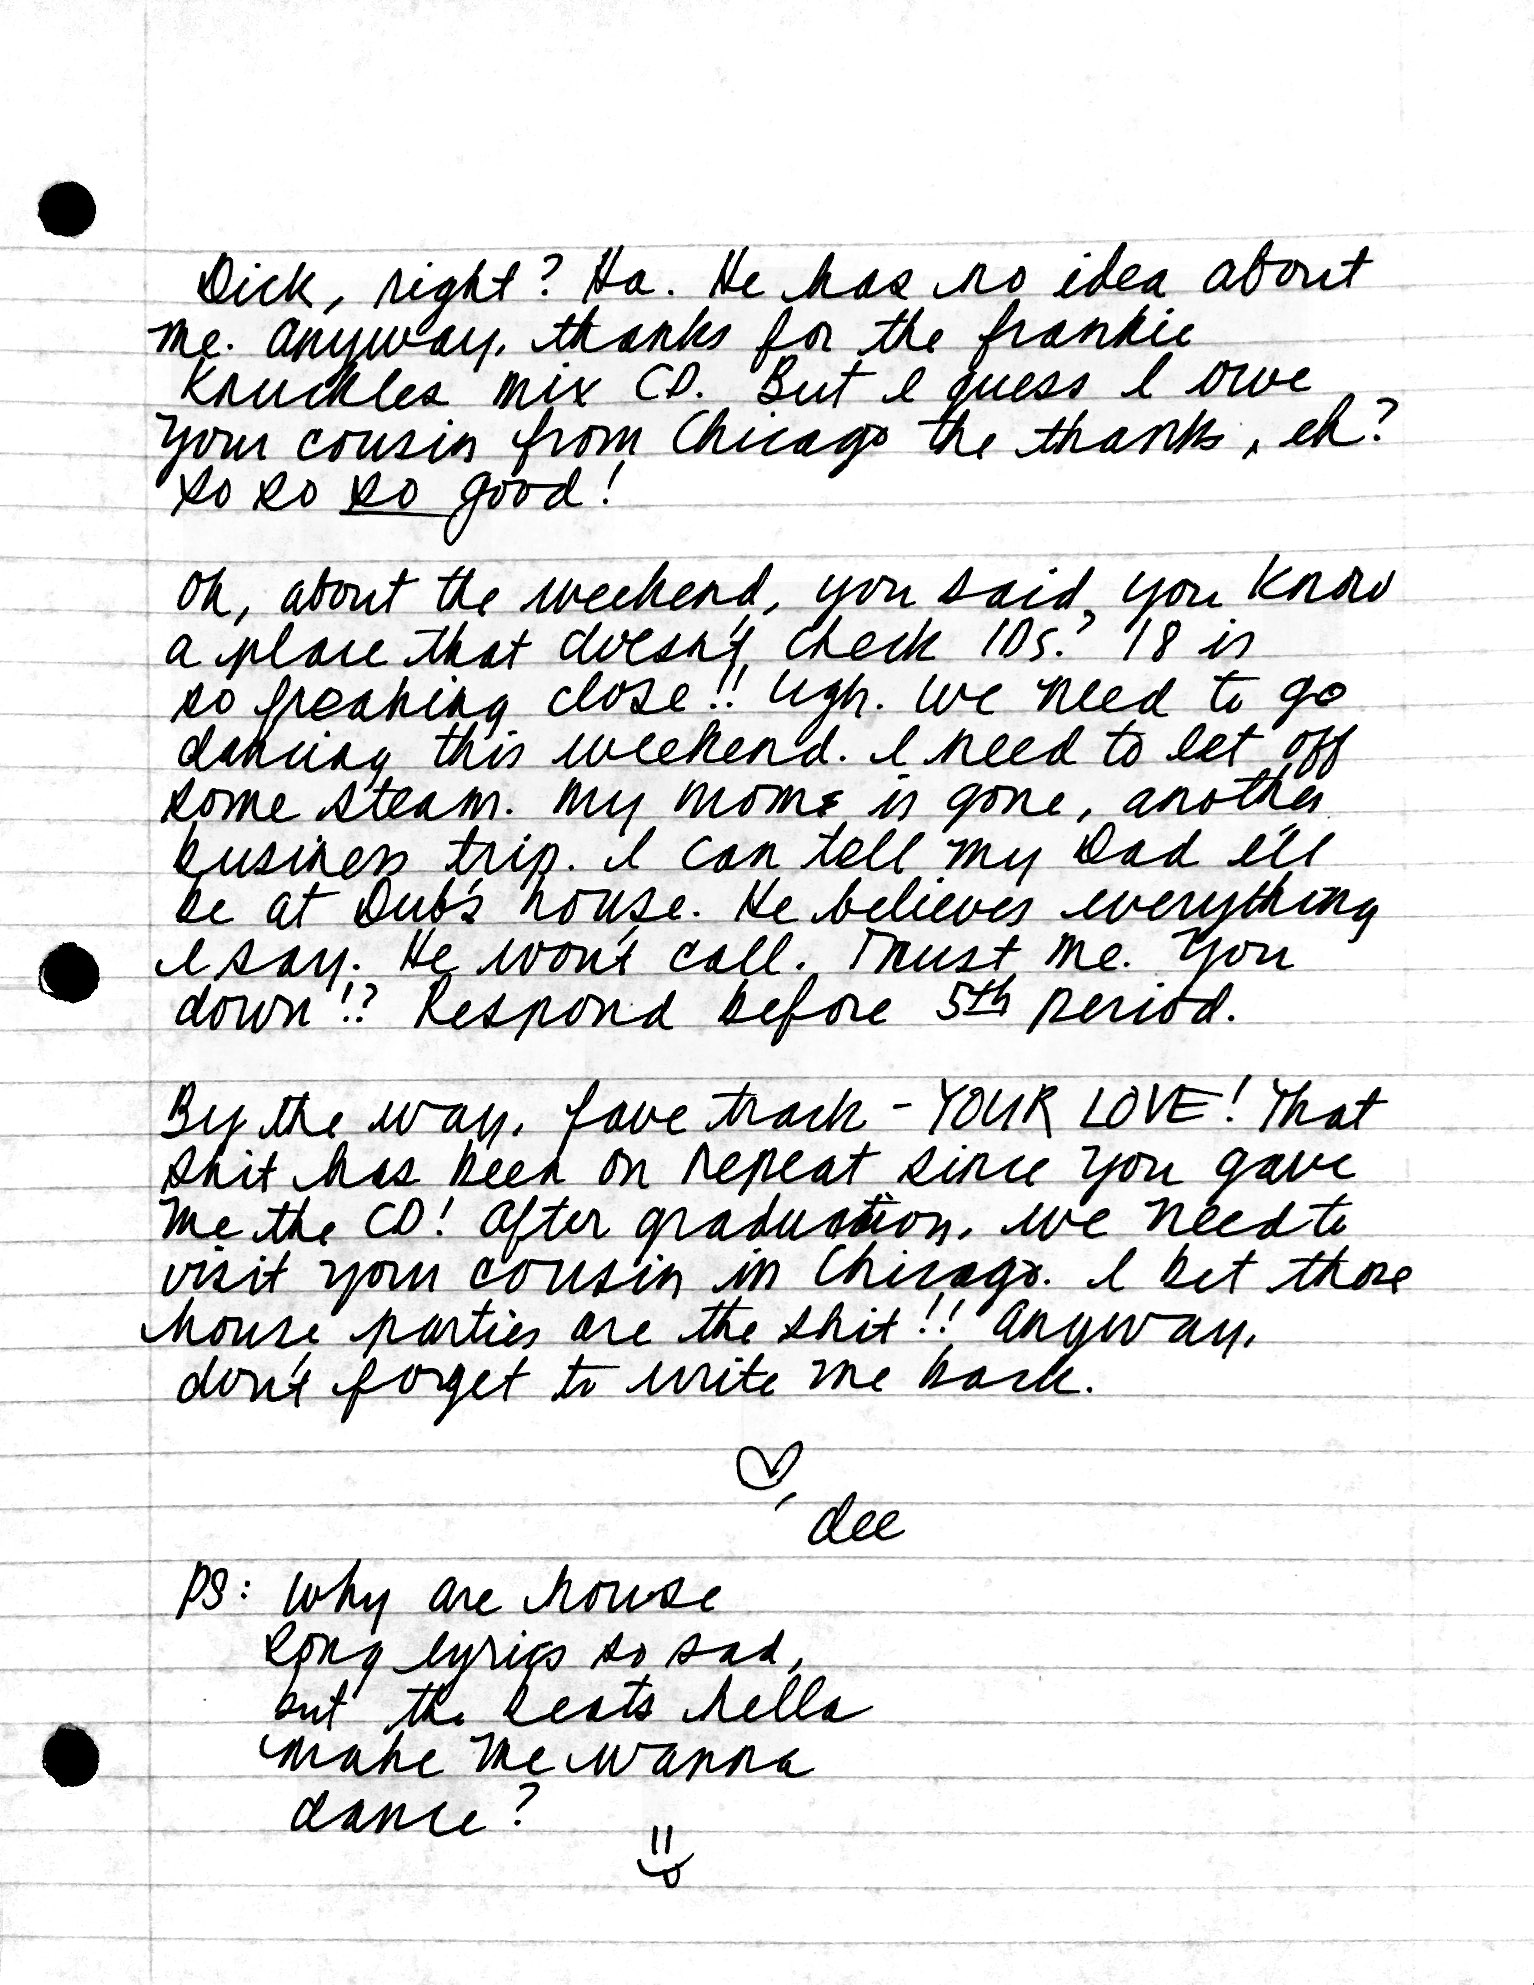 Dick, right? Ha. He has no idea about
me. Anyway, thanks for the frankie
knuckles mix CD. But I guess I owe
your cousin from Chicago the thanks, eh?
So so so good!
Oh, about the weekend, you said you know
a place that doesn't check IDs? 18 is
so freaking close!! Ugh. We need to go
dancing this weekend. I need to let off
some steam. My mom is gone, another
business trip. I can tell my Dad I'll
be at Dub's house. He believes everything
I say. He won't call. Trust me. You
down!? Respond before 5th period.
By the way, fave track - YOUR LOVE! That
shit has been on repeat since you gave
me the CD! After graduation, we need to
visit your cousin in Chicago. I bet those
house parties are the shit!! Anyway,
don't forget to write me back.
♡,
dee
PS: Why are house
song lyrics so sad,
but the beats hella
make me wanna
dance?